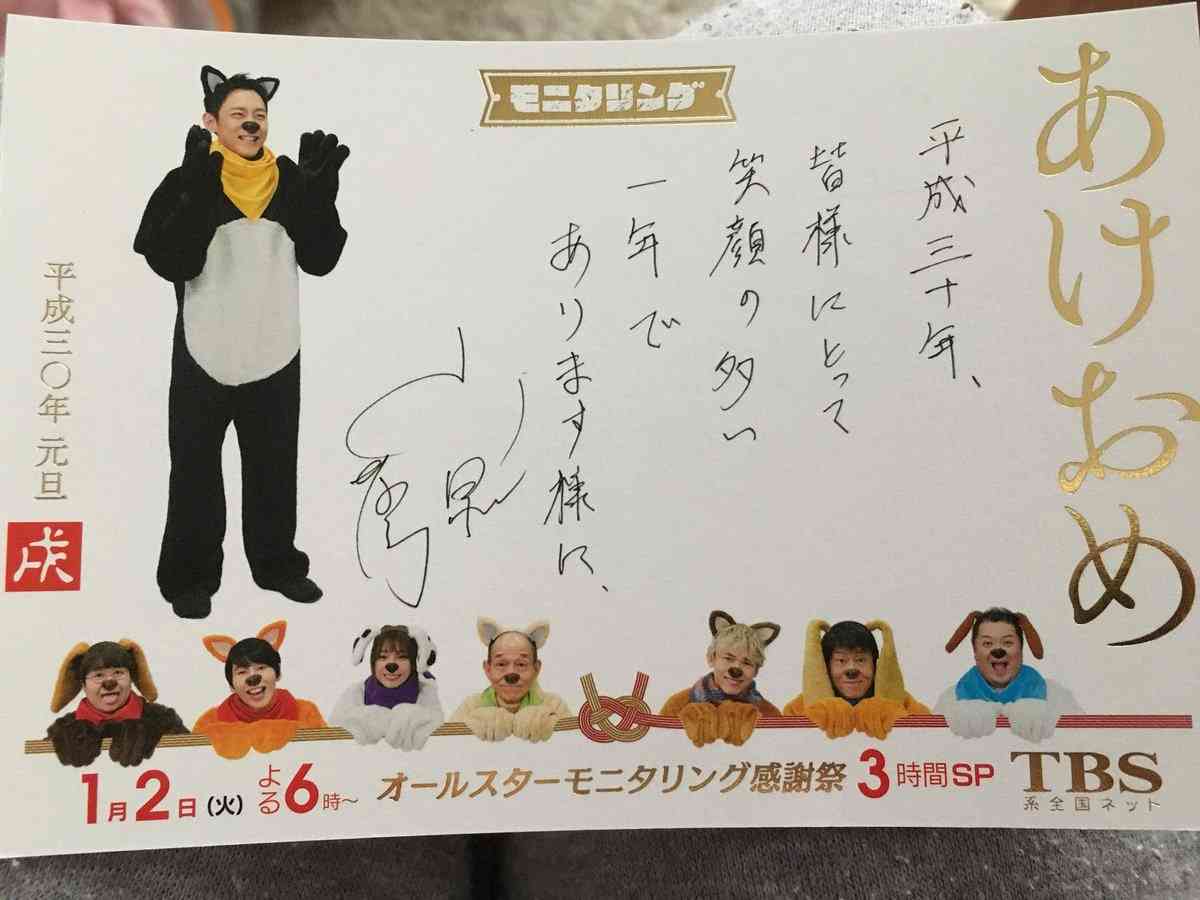 あけおめ
モニタリング
平成三十年、
皆様にとって
笑顔の多い
一年で
あります様に、
平成三〇年 元旦
戌
1月2日(火) よる6時～ オールスターモニタリング感謝祭 3時間SP
TBS
系全国ネット